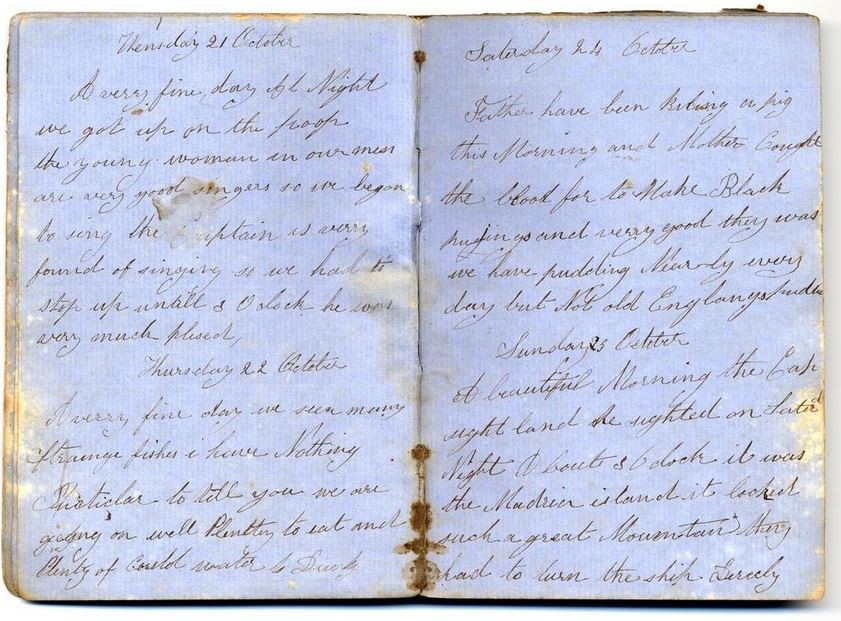 Wensday 21 October
A verry fine day At Night
we got up on the poop
the young woman in our mess
are very good singers so we began
to sing the Captain is verry
found of singing so we had to
stop up untill 8 O clock he was
very much plised,
Thursday 22 October
A verry fine day we seen many
strainge fishes i have Nothing
Particlar to tell you we are
going on well Plentty to eat and
Plenty of Could water to
Saterday 24 October
Father have been kiling a pig
this Morning and Mother Cought
the blood for to Make Black
pudings and verry good they was
we have pudding Near-ly every
day but Not old Englangs
Sunday 25 October
A beautiful Morning the Cap
sight land he sighted on Saterd
Night A bout 8 O clock it was
the Madrier island it looked
such a great Mountain they
had to turn the ship